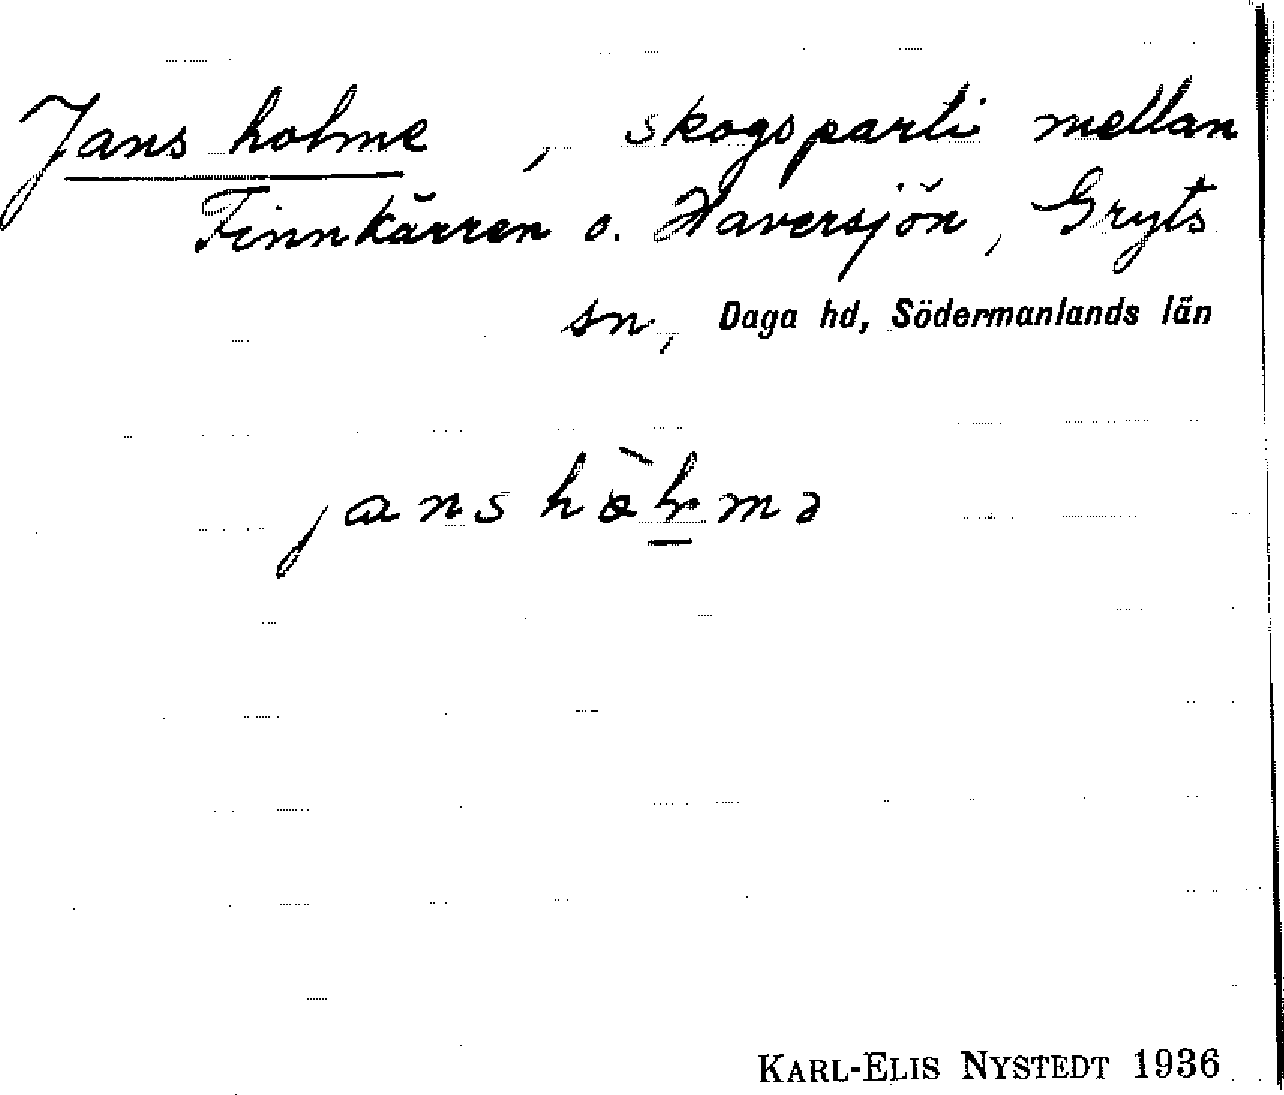 Jans holme, skogsparti mellan
Finnkärren o. Haversjön, Gryts
sn, Daga hd, Södermanlands län
KARL-ELIS NYSTEDT 1936